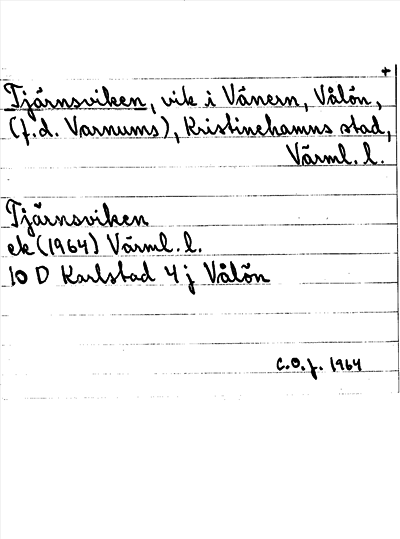 +
Tjärnsviken, vik i Vänern, Vålön,
(f.d. Varnums), Kristinehamns stad,
Värml. l.
Tjärnsviken
ek (1964) Värml. l.
10 D Karlstad 4 j Vålön
C.O.J. 1964